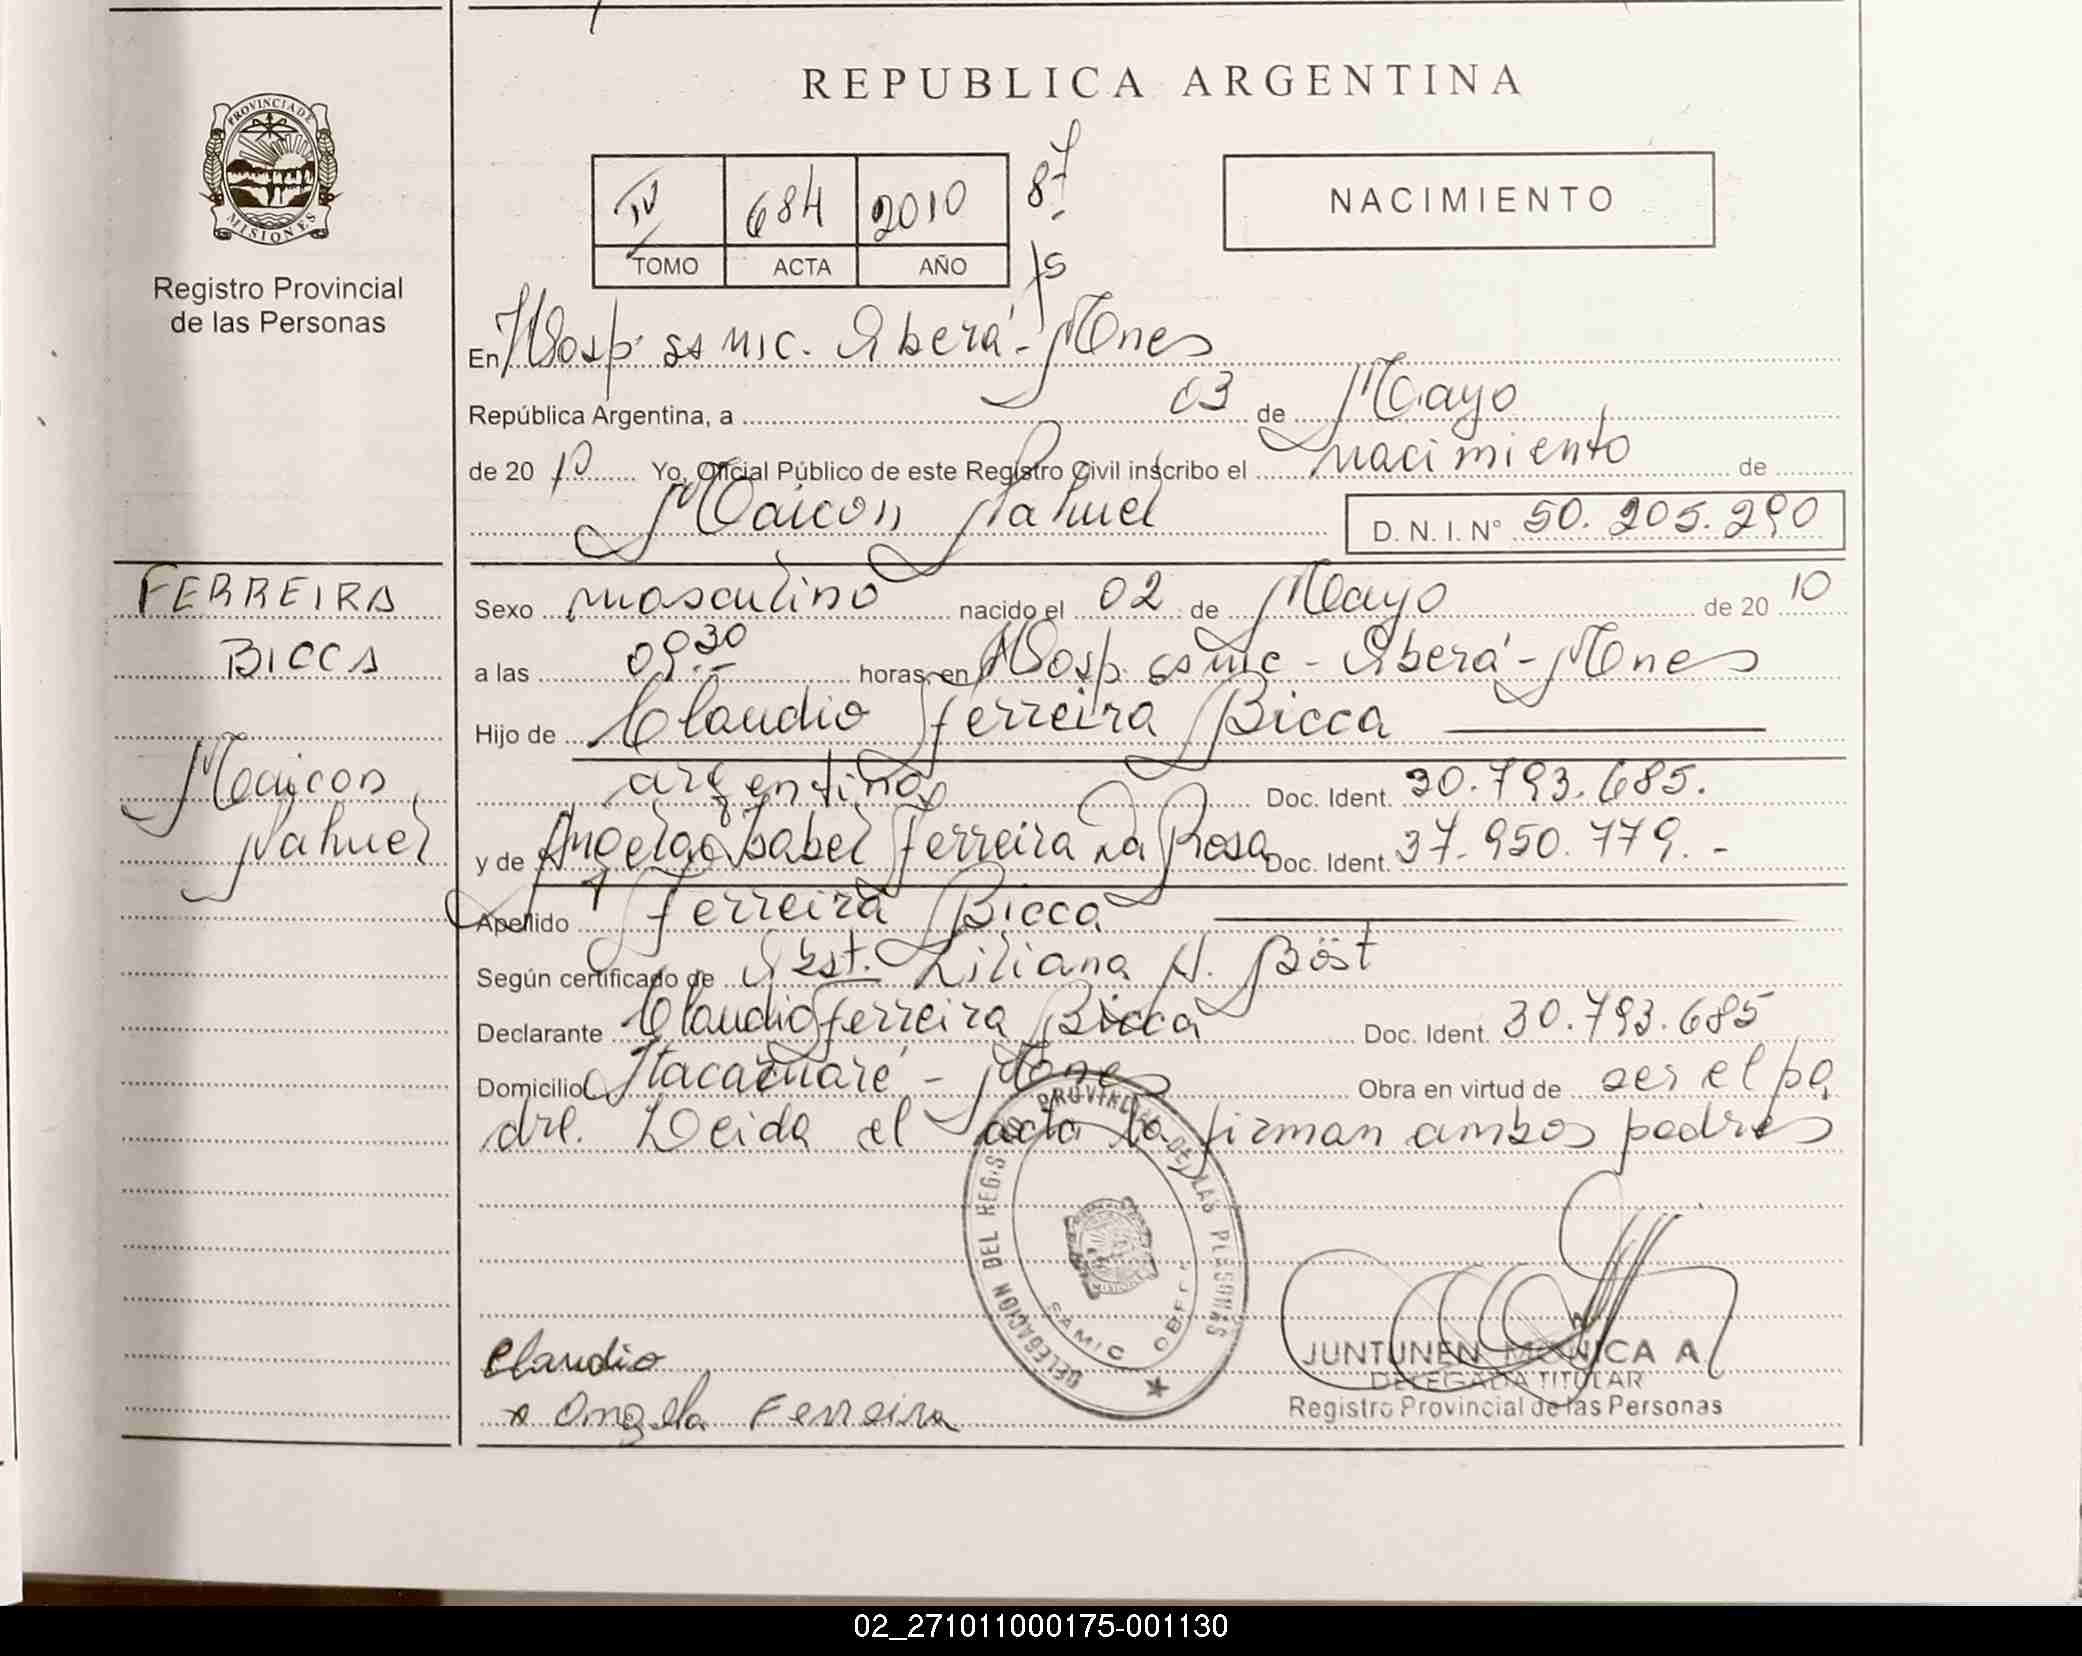 REPUBLICA ARGENTINA
PROVINCIA DE
MISIONES
Registro Provincial
de las Personas
IV 684 2010
TOMO ACTA AÑO
87
NACIMIENTO
En Hosp. ssmic. Oberá - Mnes
República Argentina, a 03 de Mayo
de 20 10 Yo, Oficial Público de este Registro Civil inscribo el nacimiento de
Maicon Nahuel D. N. I. N° 50.205.290
FERREIRA
BICCA
Maicon
Nahuel
Sexo masculino nacido el 02 de Mayo de 20 10
a las 09.30 horas, en Hosp. ssmic - Oberá - Mnes
Hijo de Claudio Ferreira Bicca
argentino Doc. Ident. 30.793.685.
y de Angela Isabel Ferreira Da Rosa Doc. Ident. 37.950.779.-
Apellido Ferreira Bicca
Según certificado de Obst. Liliana N. Böst
Declarante Claudio Ferreira Bicca Doc. Ident. 30.793.685
Domicilio Itacaruaré - Mnes Obra en virtud de ser el pa
dre. Leida el acta la firman ambos padres
DELEGACION DEL REGISTRO PROVINCIAL DE LAS PERSONAS
SAMIC OBERA
Claudio
x Angela Ferreira
JUNTUNEN MONICA A
DELEGADA TITULAR
Registro Provincial de las Personas
02_271011000175-001130